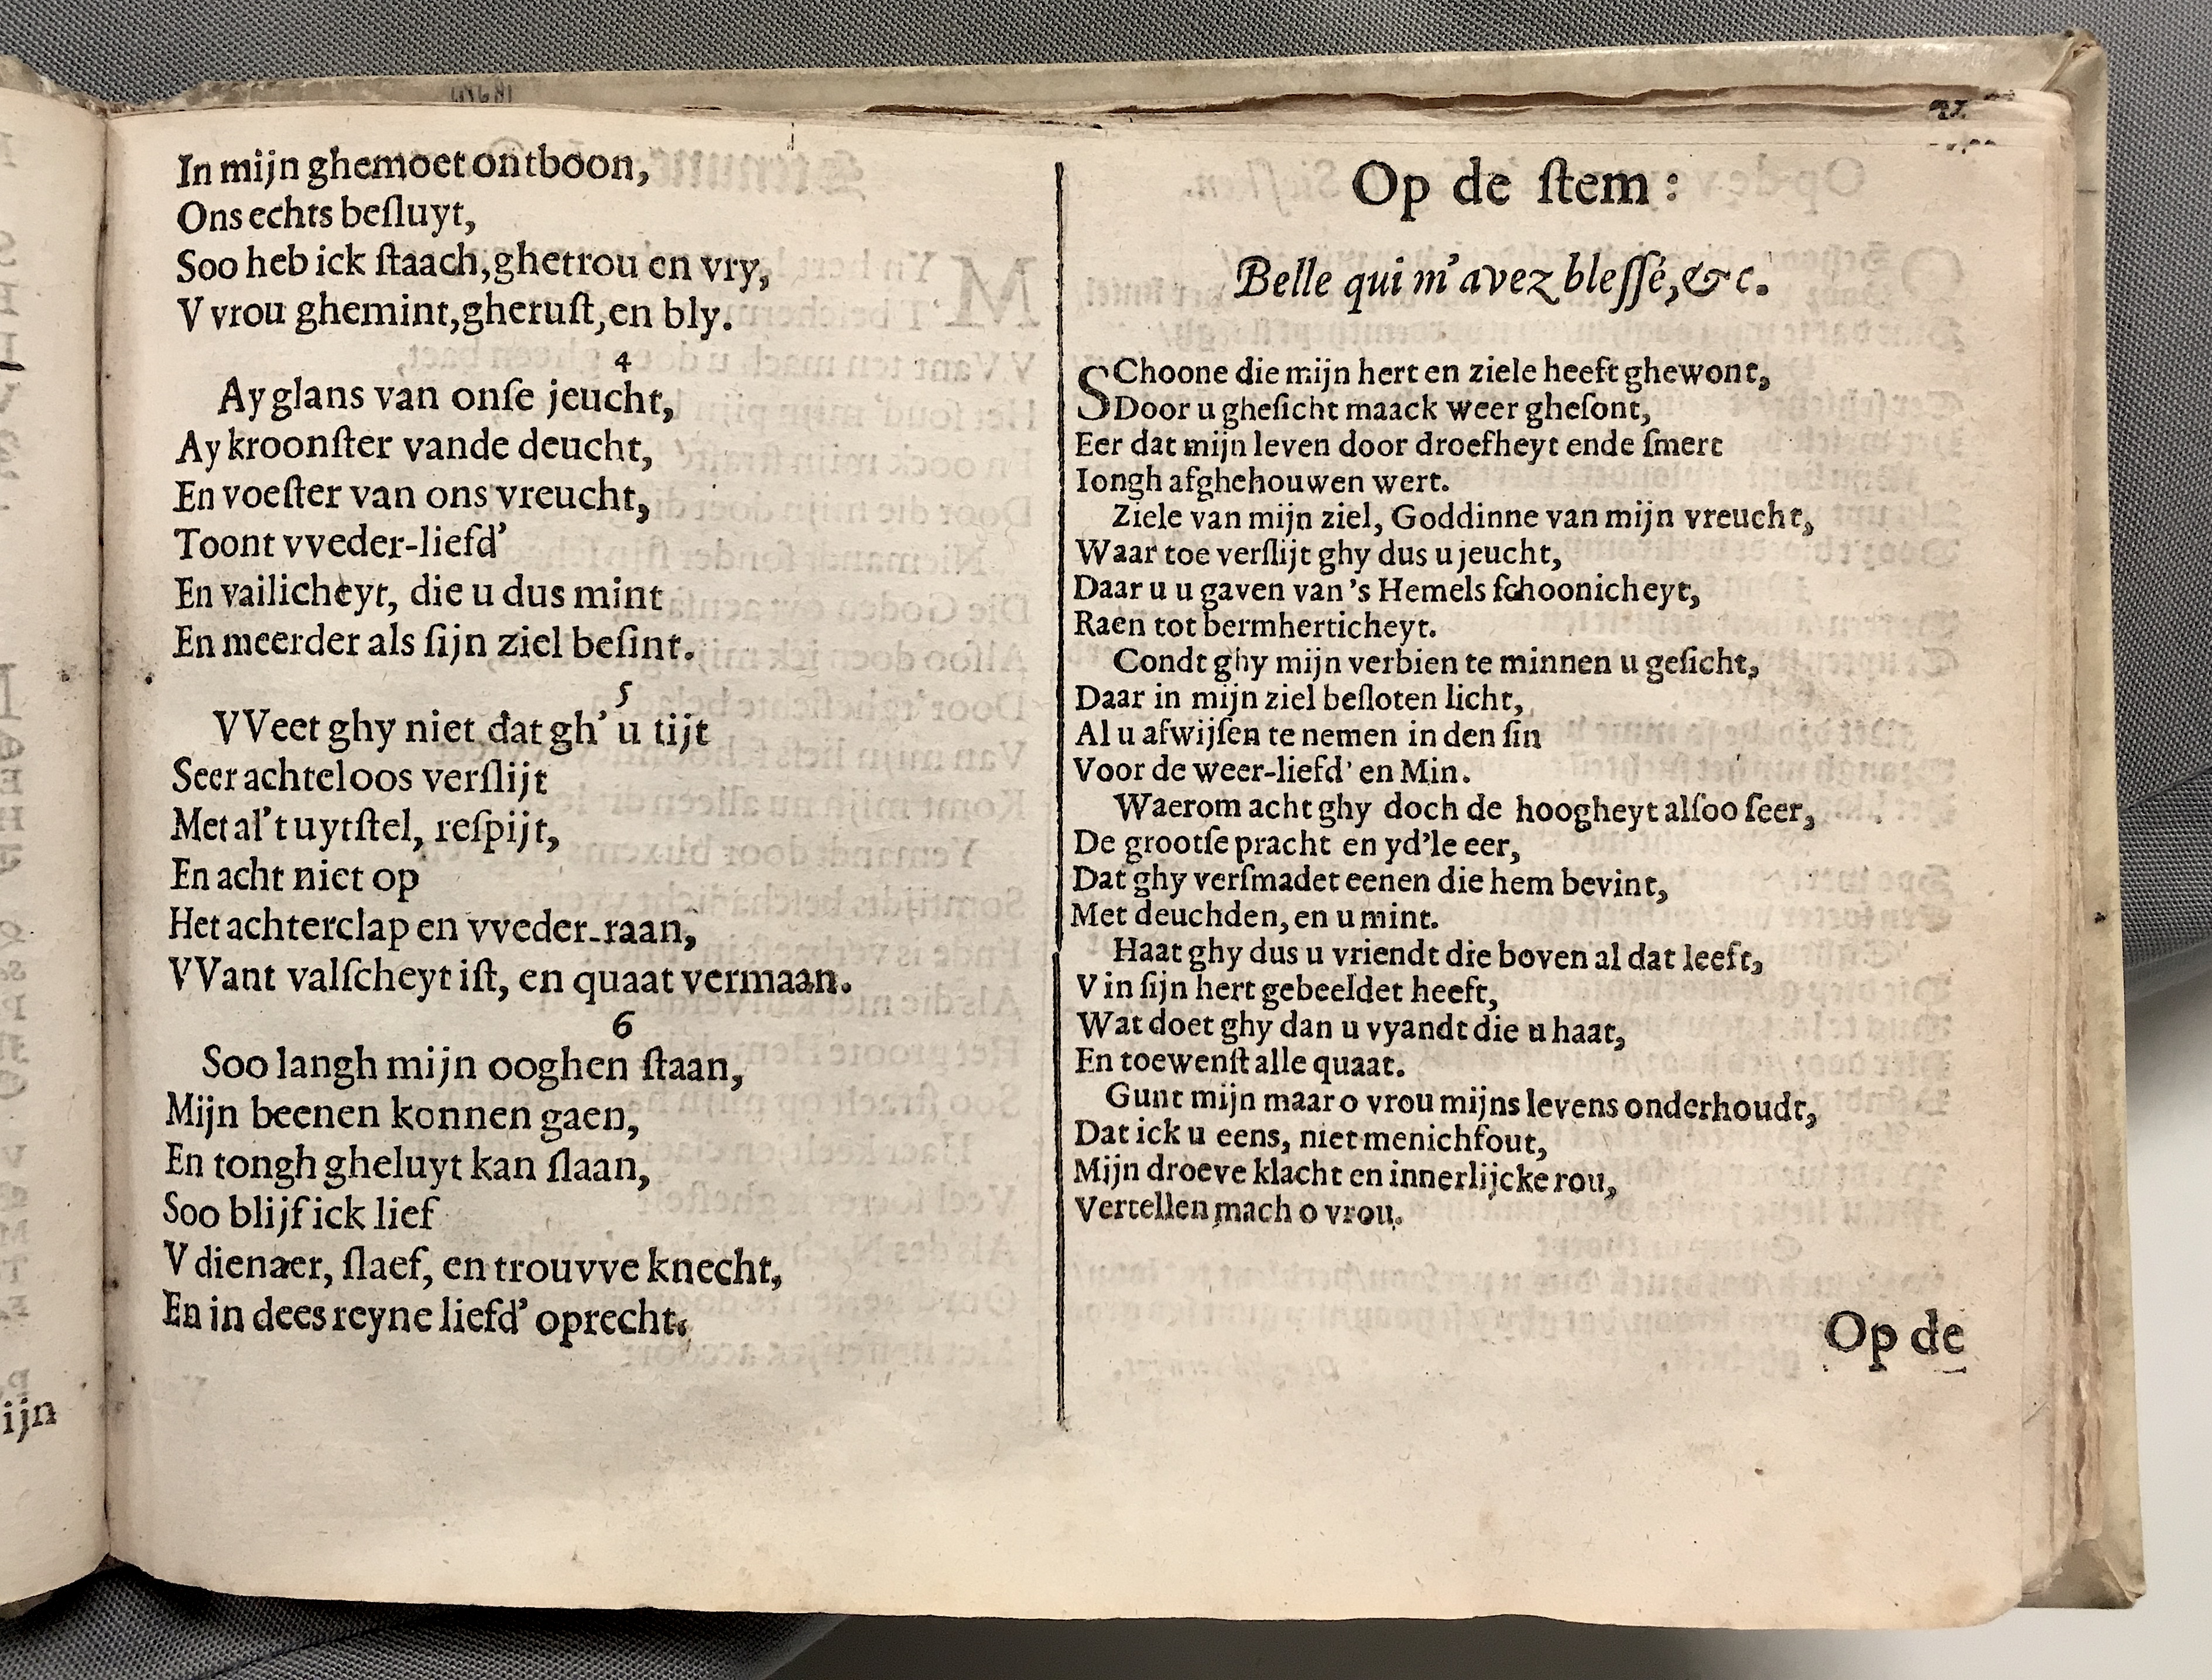 In mijn ghemoet ontboon,
Ons echts beſluyt,
Soo heb ick ſtaach, ghetrou en vry,
V vrou ghemint, gheruſt, en bly.
4
Ay glans van onſe jeucht,
Ay kroonſter vande deucht,
En voeſter van ons vreucht,
Toont vveder-liefd'
En vailicheyt, die u dus mint
En meerder als ſijn ziel beſint.
5
VVeet ghy niet dat gh' u tijt
Seer achteloos verſlijt
Met al't uytſtel, reſpijt,
En acht niet op
Het achterclap en vveder-raan,
VVant valſcheyt iſt, en quaat vermaan.
6
Soo langh mijn ooghen ſtaan,
Mijn beenen konnen gaen,
En tongh gheluyt kan ſlaan,
Soo blijf ick lief
V dienaer, ſlaef, en trouvve knecht,
En in dees reyne liefd' oprecht.
Op de ſtem:
Belle qui m'avez bleſſé, &c.
SChoone die mijn hert en ziele heeft ghewont,
Door u gheſicht maack weer gheſont,
Eer dat mijn leven door droefheyt ende ſmert
Iongh afghehouwen wert.
Ziele van mijn ziel, Goddinne van mijn vreucht,
Waar toe verſlijt ghy dus u jeucht,
Daar u u gaven van 's Hemels ſchoonicheyt,
Raen tot bermherticheyt.
Condt ghy mijn verbien te minnen u geſicht,
Daar in mijn ziel beſloten licht,
Al u afwijſen te nemen in den ſin
Voor de weer-liefd' en Min.
Waerom acht ghy doch de hoogheyt alſoo ſeer,
De grootſe pracht en yd'le eer,
Dat ghy verſmadet eenen die hem bevint,
Met deuchden, en u mint.
Haat ghy dus u vriendt die boven al dat leeft,
V in ſijn hert gebeeldet heeft,
Wat doet ghy dan u vyandt die u haat,
En toewenſt alle quaat.
Gunt mijn maar o vrou mijns levens onderhoudt,
Dat ick u eens, niet menichfout,
Mijn droeve klacht en innerlijcke rou,
Vertellen mach o vrou.
Op de
ijn